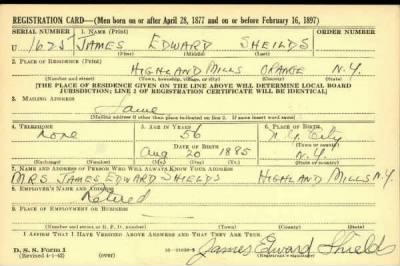 REGISTRATION CARD—(Men born on or after April 28, 1877 and on or before February 16, 1897)
SERIAL NUMBER 1. NAME (Print) ORDER NUMBER
U 1625 JAMES EDWARD SHEILDS
(First) (Middle) (Last)
2. PLACE OF RESIDENCE (Print)
HIGHLAND MILLS ORANGE N.Y.
(Number and street) (Town, township, village, or city) (County) (State)
[THE PLACE OF RESIDENCE GIVEN ON THE LINE ABOVE WILL DETERMINE LOCAL BOARD
JURISDICTION; LINE 2 OF REGISTRATION CERTIFICATE WILL BE IDENTICAL]
3. MAILING ADDRESS
Same
[Mailing address if other than place indicated on line 2. If same insert word same]
4. TELEPHONE 5. AGE IN YEARS 6. PLACE OF BIRTH
None 56 N.Y. City
DATE OF BIRTH (Town or county)
Aug 20 1885 N.Y.
(Exchange) (Number) (Mo.) (Day) (Yr.) (State or country)
7. NAME AND ADDRESS OF PERSON WHO WILL ALWAYS KNOW YOUR ADDRESS
MRS JAMES EDWARD SHIELDS HIGHLAND MILLS N.Y.
8. EMPLOYER'S NAME AND ADDRESS
Retired
9. PLACE OF EMPLOYMENT OR BUSINESS
(Number and street or R. F. D. number) (Town) (County) (State)
I AFFIRM THAT I HAVE VERIFIED ABOVE ANSWERS AND THAT THEY ARE TRUE.
D. S. S. Form 1
(Revised 4-1-42) (over)
James Edward Shields